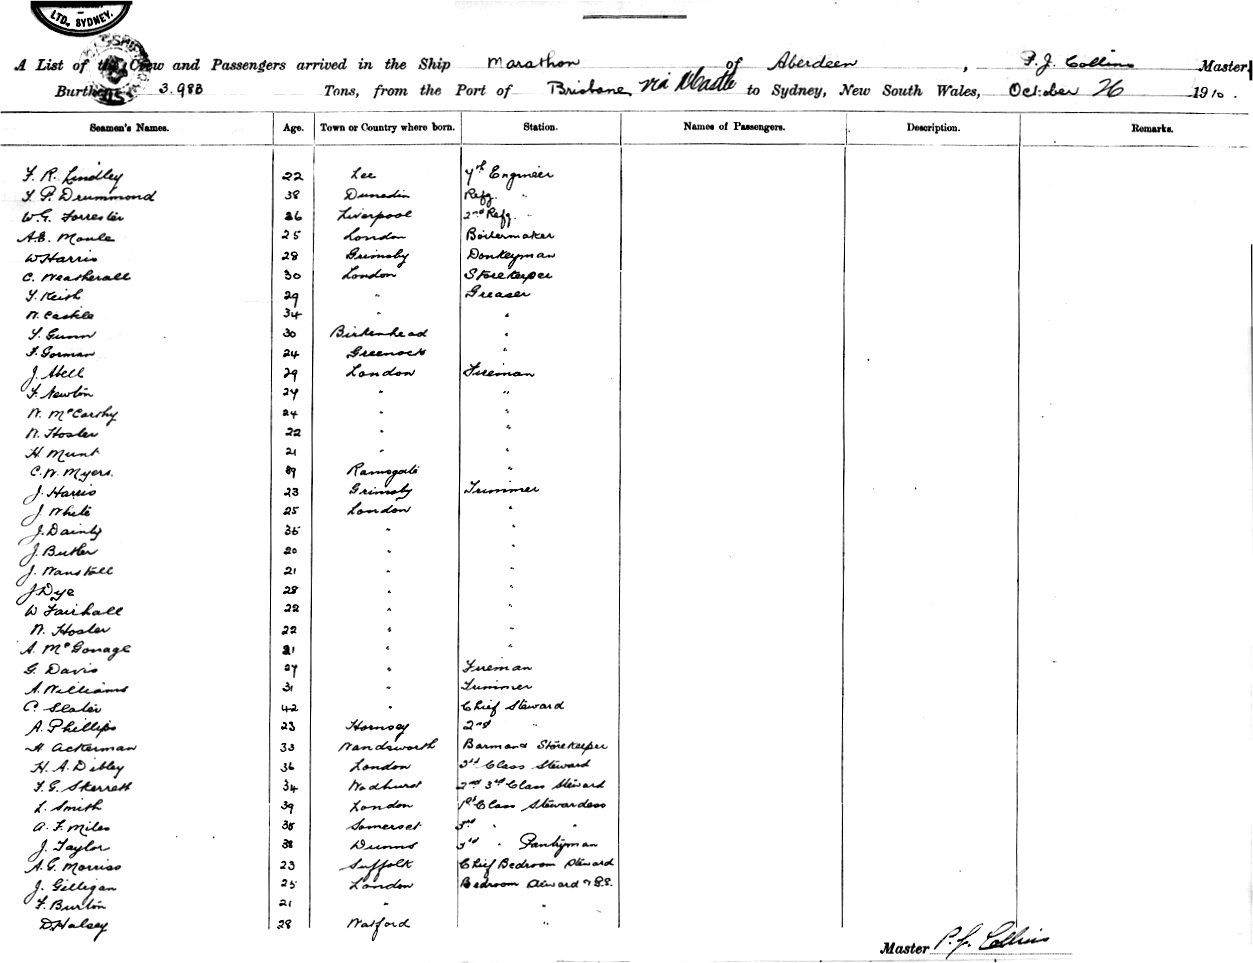 LTD. SYDNEY.
A List of the Crew and Passengers arrived in the Ship Marathon of Aberdeen, P. J. Collins Master,
Burthen 3.983 Tons, from the Port of Brisbane via N'Castle to Sydney, New South Wales, October 26 1910.
Seamen's Names. Age. Town or Country where born. Station. Names of Passengers. Description. Remarks.
F. R. Lindley 22 Lee 7th Engineer
F. P. Drummond 38 Dunedin Refg. "
W. G. Forrester 26 Liverpool 2nd Refg. "
A. E. Moule 25 London Boilermaker
W Harris 28 Grimsby Donkeyman
C. Weatherall 30 London Storekeeper
Keith 29 " Greaser
W. Castle 34 " "
Gunn 30 Birkenhead "
F. Gorman 24 Greenock "
J. Abell 29 London Fireman
F. Newton 24 " "
W. McCarthy 24 " "
W. Hosler 22 " "
H. Munt 21 " "
C. W. Myers. 19 Ramsgate "
J. Harris 23 Grimsby Trimmer
J White 25 London "
J. Dainty 35 " "
J. Butler 20 " "
J. Wanstall 21 " "
J Dye 28 " "
W Fairhall 22 " "
W. Hosler 22 " "
A. McGonagl 21 " "
G. Davis 27 " Fireman
A. Williams 31 " Trimmer
C. Slater 42 " Chief Steward
A. Phillips 23 Hornsey 2nd "
H Ackerman 33 Wandsworth Barman & Storekeeper
H. A. Dibley 36 London 3rd Class Steward
F. G. Skerrett 34 Wadhurst 2nd 3rd Class Steward
L. Smith 39 London 1st Class Stewardess
A. F. Miles 35 Somerset 3rd " "
J. Taylor 38 3rd " Pantryman
A. G. Morriss 23 Suffolk Chief Bedroom Steward
J. Gilligan 25 London Bedroom Steward & G.S.
F. Burton 21 " "
D. Halsey 28 Watford "
Master P. J. Collins